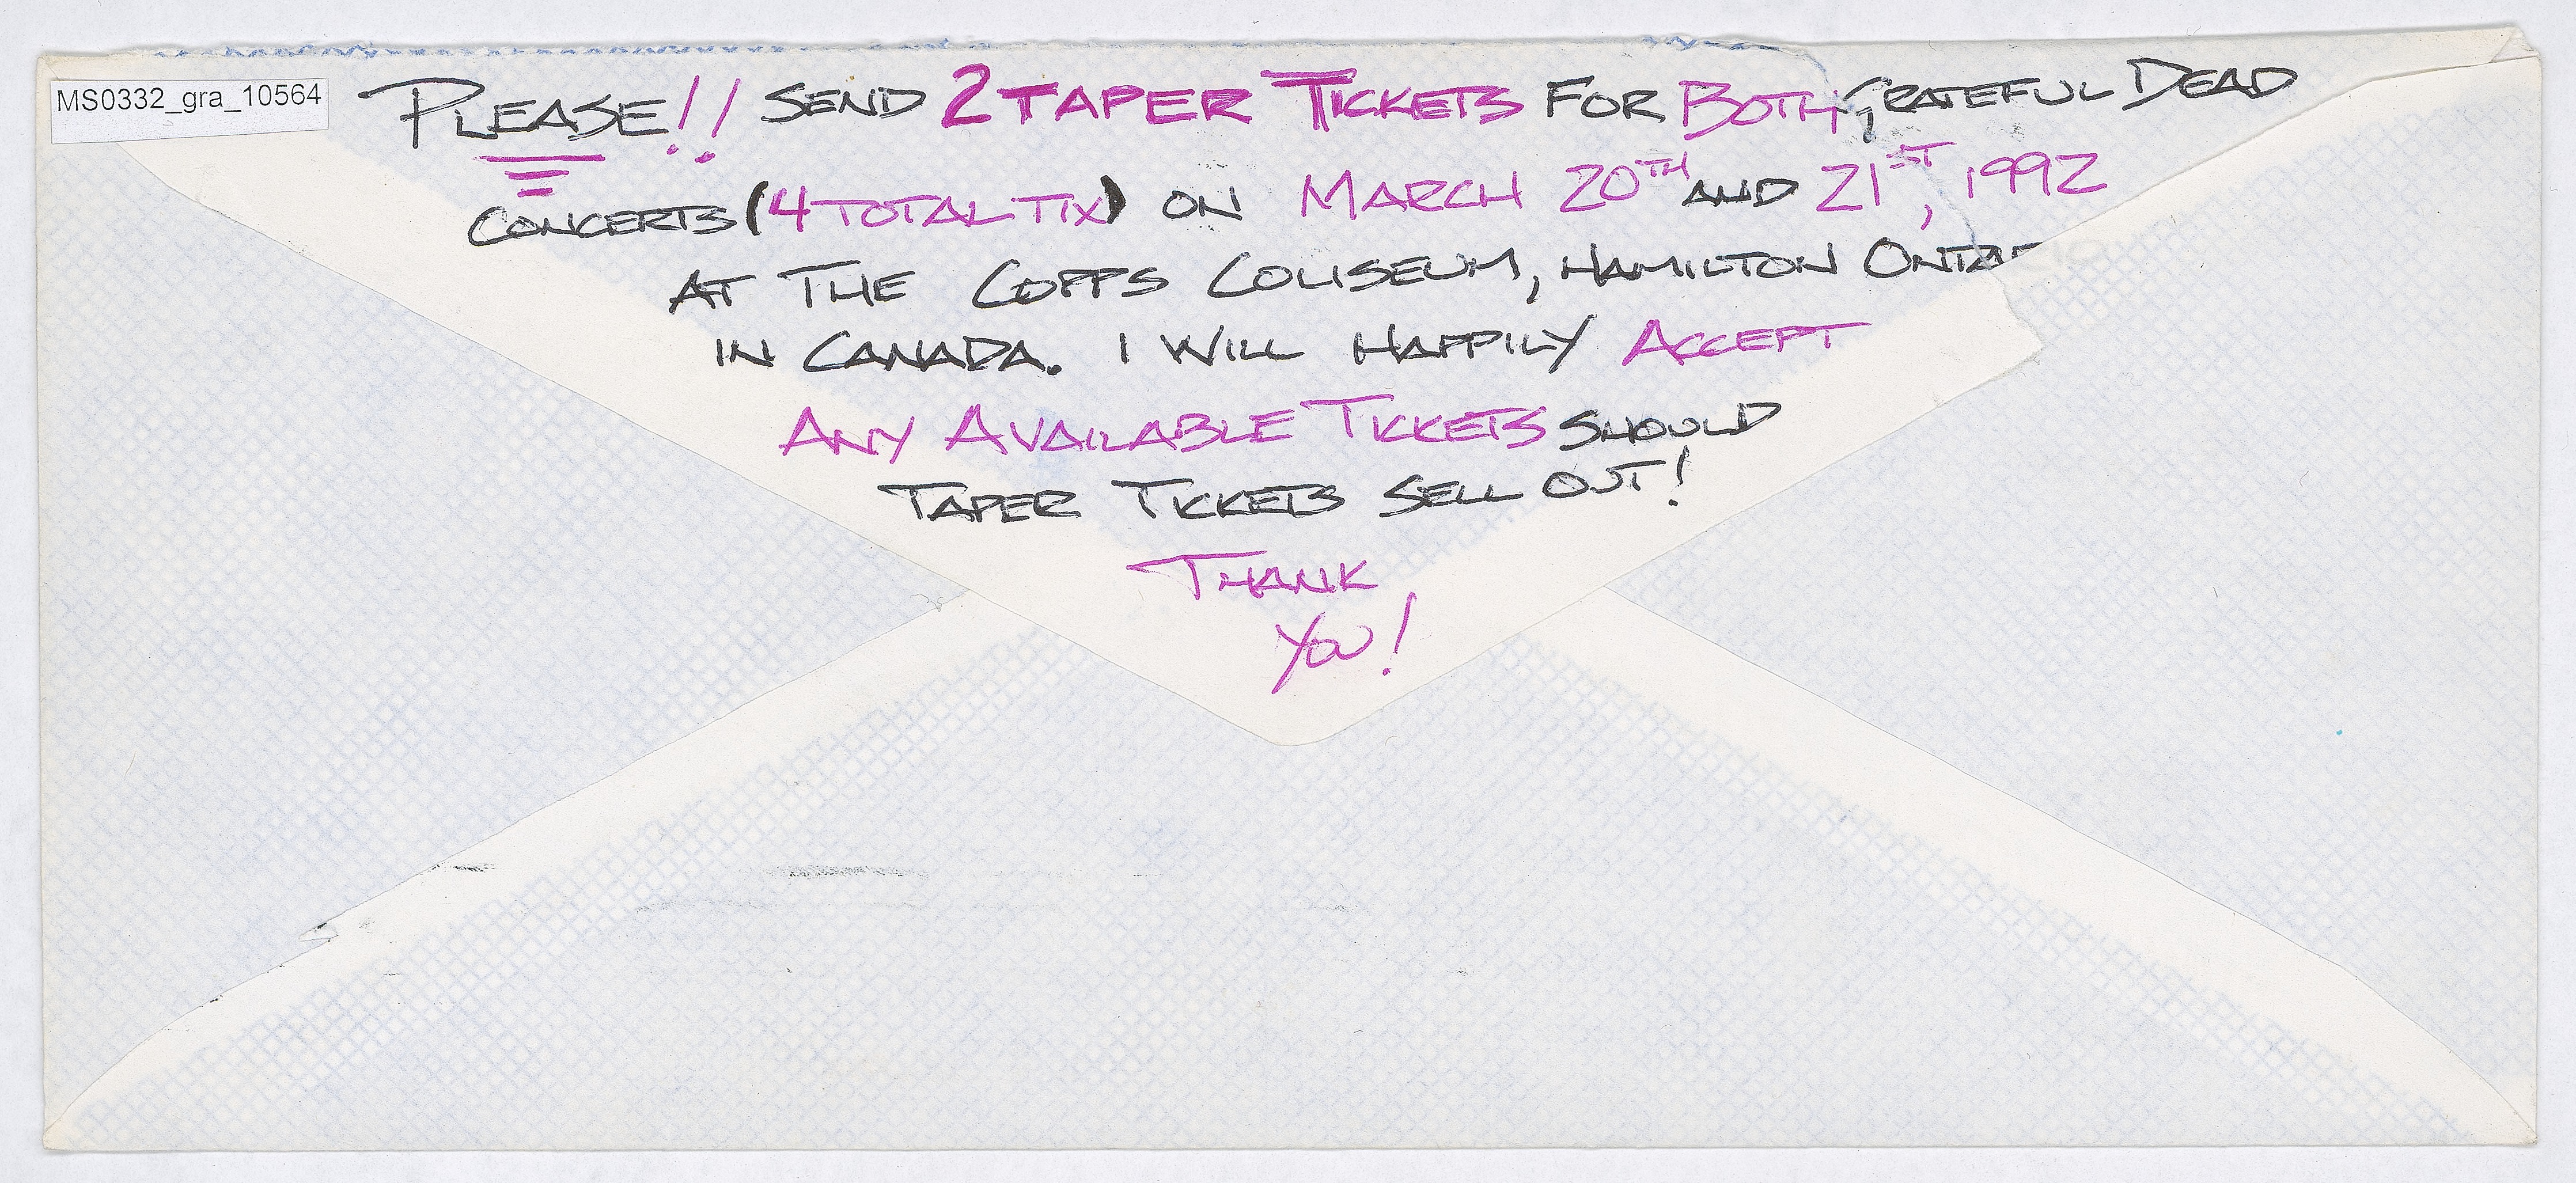 MS0332_gra_10564
PLEASE!! SEND 2 TAPER TICKETS FOR BOTH GRATEFUL DEAD
CONCERTS (4 TOTAL TIX) ON MARCH 20TH AND 21ST, 1992
AT THE COPPS COLISEUM, HAMILTON ONTARIO
IN CANADA. I WILL HAPPILY ACCEPT
ANY AVAILABLE TICKETS SHOULD
TAPER TICKETS SELL OUT!
THANK
YOU!